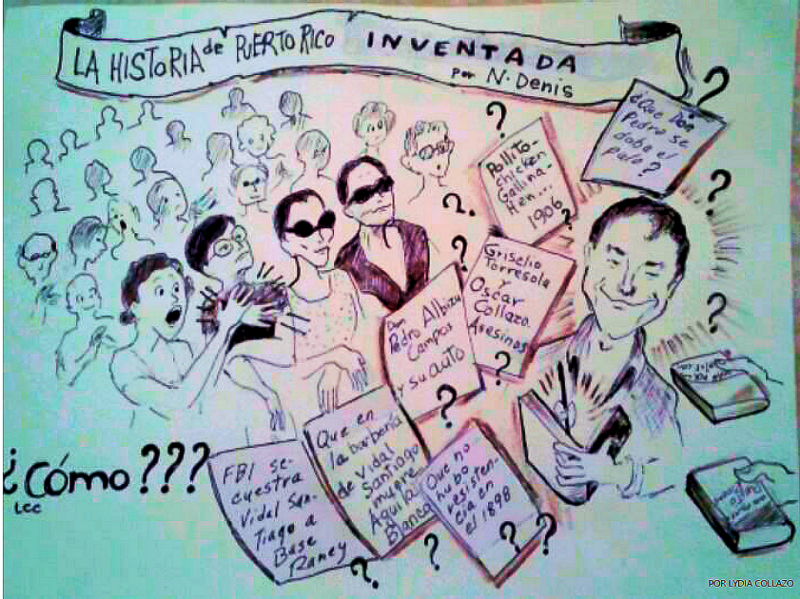 LA HISTORIA de PUERTO RICO INVENTADA
Por N. Denis
¿Que Don
Pedro se
daba el
palo?
?
?
?
?
Pollito-
chicken
Gallina-
Hen...
1906
?
?
?
Griselio
Torresola
y
Oscar
Collazo
Asesinos
?
Don
Pedro Albizu
Campos
y su auto
?
¿Cómo???
LCC
FBI se-
cuestra
Vidal San-
Tiago a
Base
Ramey
?
Que en
la barbería
de Vidal
Santiago
muere
Aguila
Blanca
?
Que no
hubo
resisten-
cia en
el 1898
?
?
POR LYDIA COLLAZO